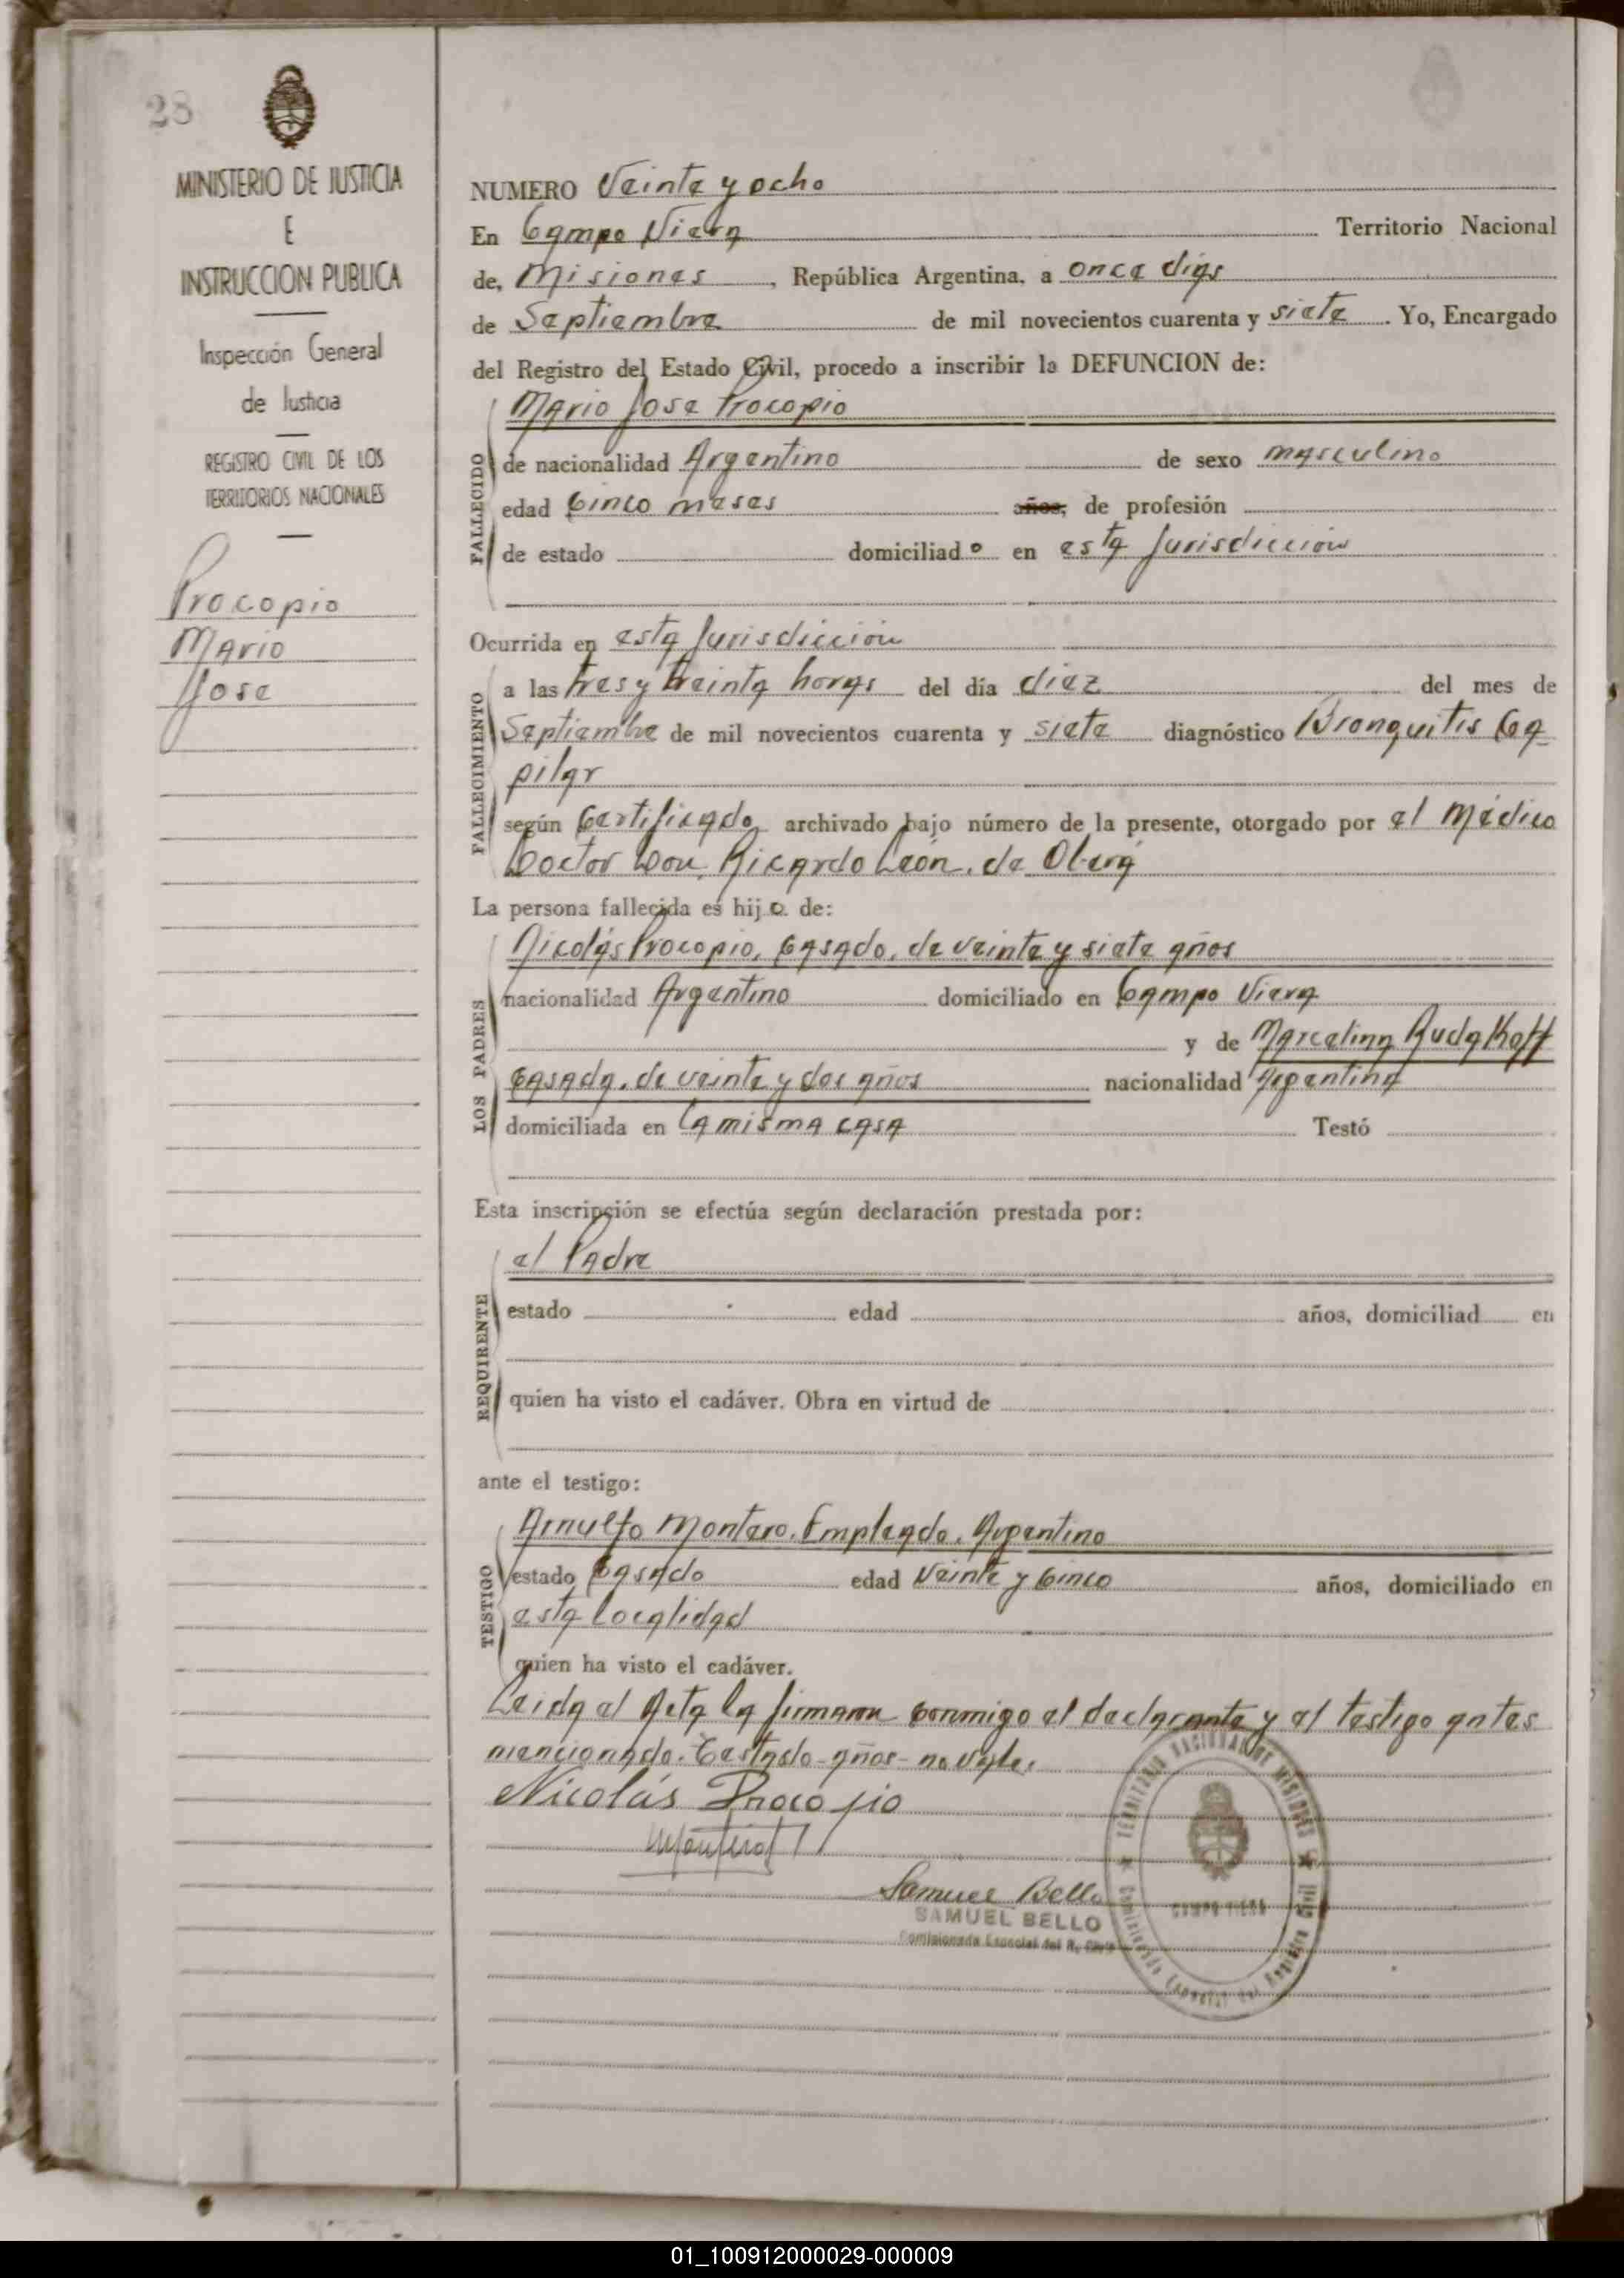 28
MINISTERIO DE JUSTICIA
E
INSTRUCCION PUBLICA
Inspección General
de Justicia
REGISTRO CIVIL DE LOS
TERRITORIOS NACIONALES
Procopio
Mario
Jose
NUMERO Veinte y ocho
En Campo Viera Territorio Nacional
de, Misiones, República Argentina, a once días
de Septiembre de mil novecientos cuarenta y siete. Yo, Encargado
del Registro del Estado Civil, procedo a inscribir la DEFUNCION de:
Mario Jose Procopio
FALLECIDO
de nacionalidad Argentino de sexo masculino
edad Cinco meses años, de profesión
de estado domiciliado en esta Jurisdiccion
Ocurrida en esta Jurisdiccion
FALLECIMIENTO
a las tres y treinta horas del día diez del mes de
Septiembre de mil novecientos cuarenta y siete diagnóstico Bronquitis Ca-
pilar
según Certificado archivado bajo número de la presente, otorgado por el Médico
Doctor Don, Ricardo León, de Oberá
La persona fallecida es hijo de:
LOS PADRES
Nicolás Procopio, Casado, de veinte y siete años
nacionalidad Argentino domiciliado en Campo Viera
y de Marcelina Rudakoff
Casada, de veinte y dos años nacionalidad Argentina
domiciliada en La misma casa Testó
Esta inscripción se efectúa según declaración prestada por:
el Padre
REQUIRENTE
estado edad años, domiciliad en
quien ha visto el cadáver. Obra en virtud de
ante el testigo:
TESTIGO
Arnulfo Montero, Empleado, Argentino
estado Casado edad Veinte y Cinco años, domiciliado en
esta localidad
quien ha visto el cadáver.
Leida el Acta la firman conmigo el declarante y el testigo antes
mencionado. Testado-años-no vale.
Nicolás Procopio
Samuel Bello
SAMUEL BELLO
Comisionado Especial del R. Civil
TERRITORIO NACIONAL DE MISIONES
CAMPO VIERA
Comisionado Especial del Registro Civil
01_100912000029-000009